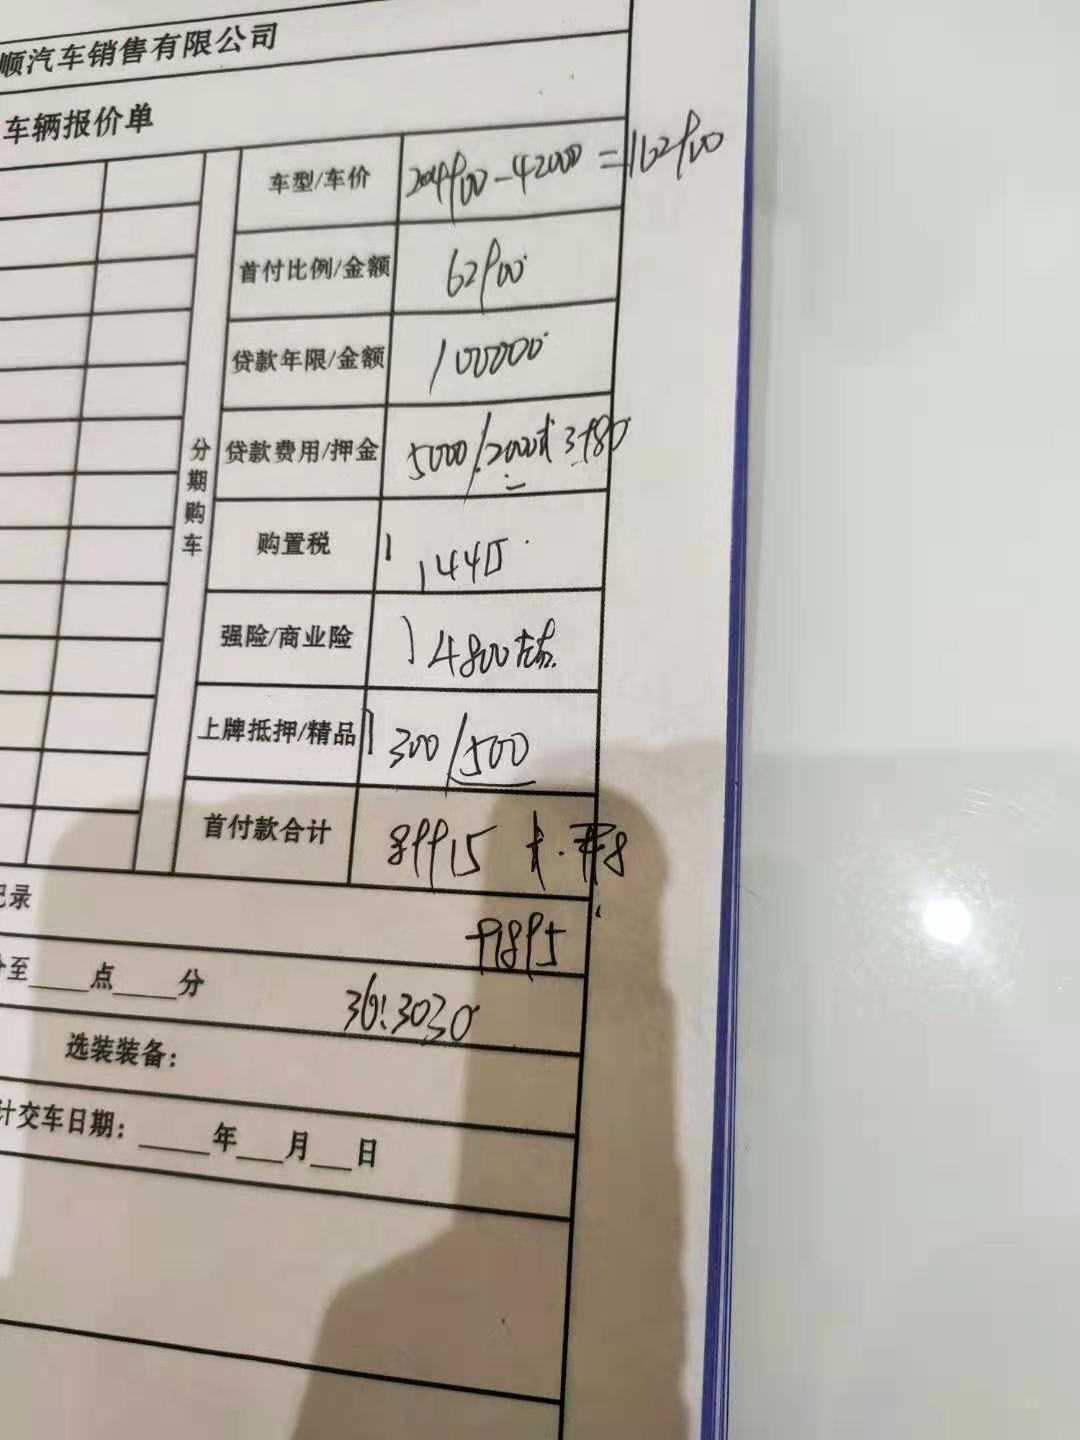 顺汽车销售有限公司
车辆报价单
分期购车
车型/车价 204900-42000=162900
首付比例/金额 62900
贷款年限/金额 100000
贷款费用/押金 5000/2000
购置税
强险/商业险 4800
上牌抵押/精品 300/500
首付款合计 89915
记录
91895
分至____点____分 36:3030
选装装备：
计交车日期：____年___月___日